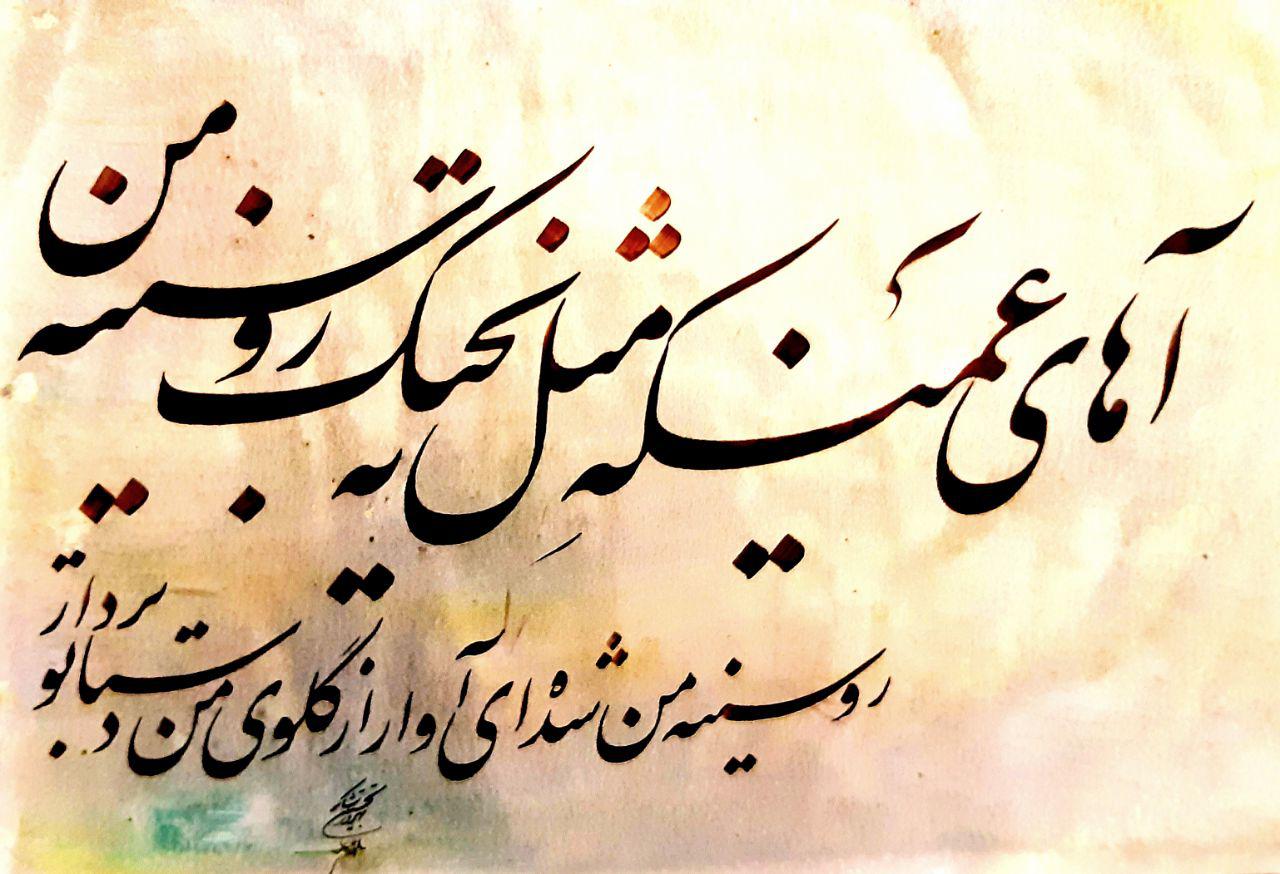 آهای غمی که مثلِ یه بختک رو سینه من
رو سینه من شده ای آوار از گلوی من دستاتو بردار